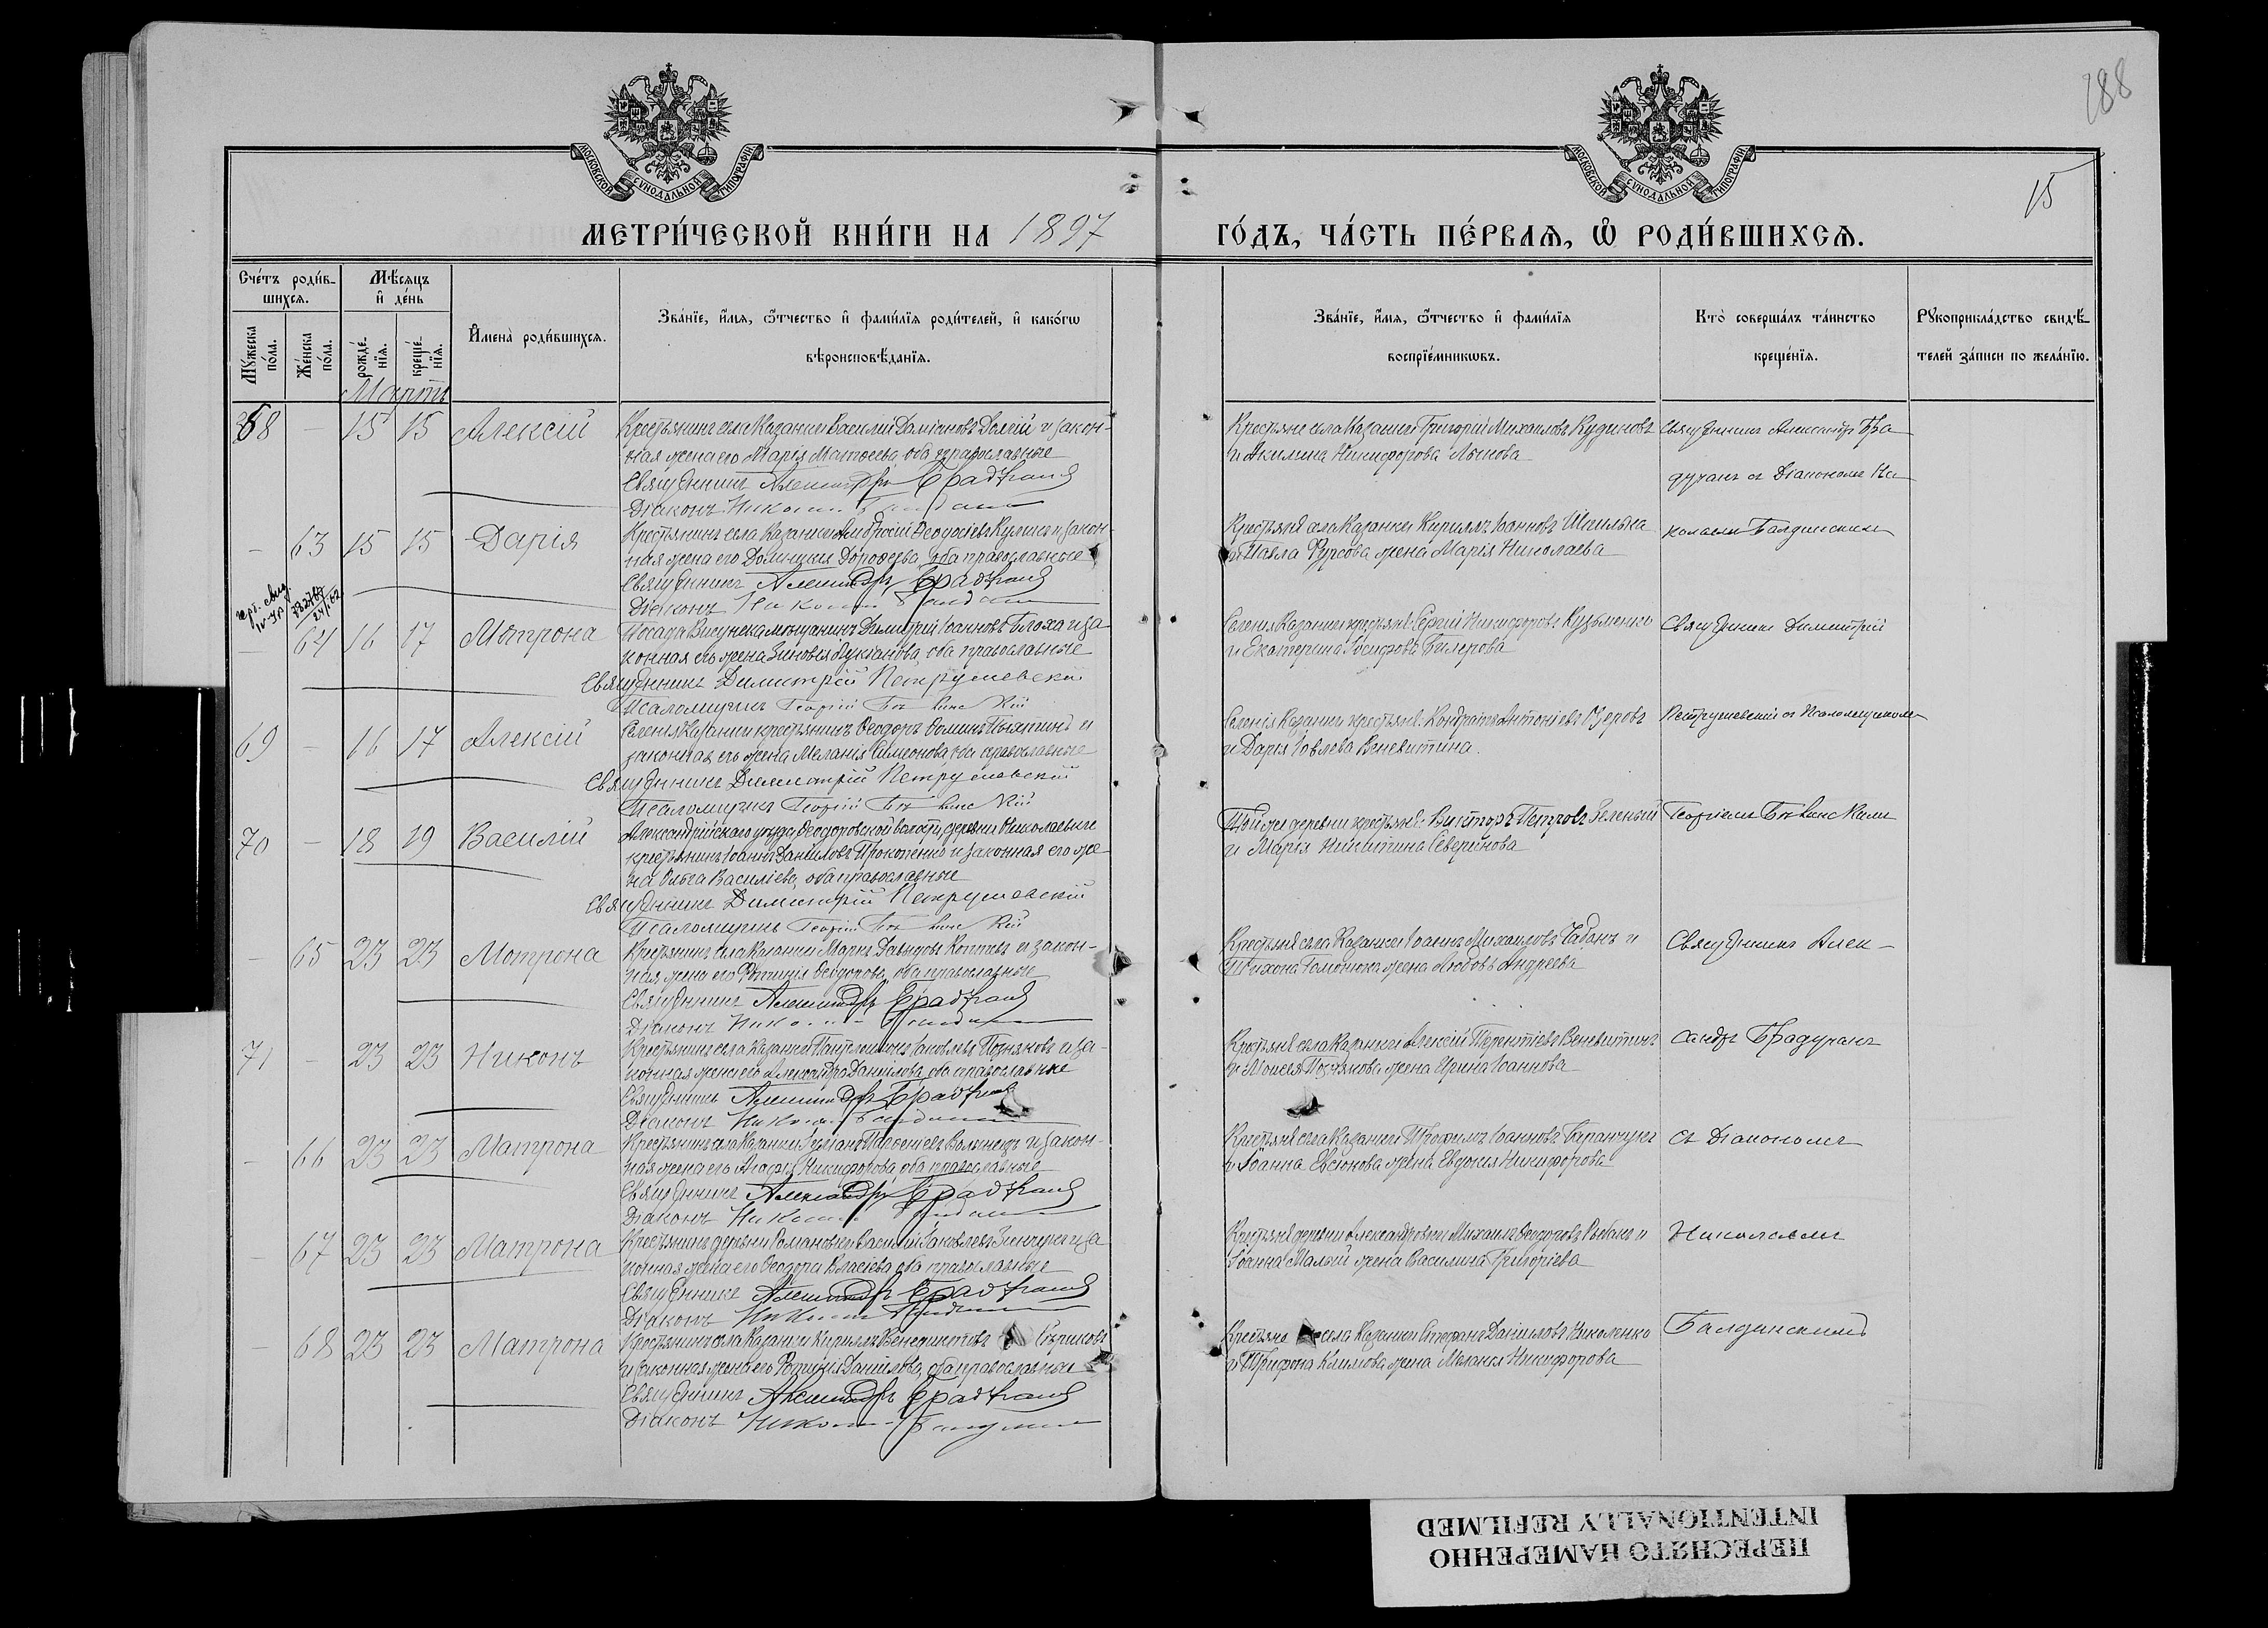 188
15
МОСКОВСКОЙ СѴНОДАЛЬНОЙ ТИПОГРАФІИ
МОСКОВСКОЙ СѴНОДАЛЬНОЙ ТИПОГРАФІИ
МЕТРИ́ЧЕСКОЙ КНИ́ГИ НА 1897
ГО́ДЪ, ЧА́СТЬ ПЕ́РВАѦ, Ѿ РОДИ́ВШИХСѦ.
Сче́тъ роди́в-
шихсѧ.
Мѣ́сѧцъ
и҆ де́нь
Мꙋ́жеска по́ла.
Же́нска по́ла.
рожде́-нїѧ.
креще́-нїѧ.
И҆мена̀ роди́вшихсѧ.
Зва́нїе, и҆́мѧ, ѻ҆́тчество и҆ фами́лїѧ роди́телей, и҆ како́гѡ
вѣроисповѣ́данїѧ.
Зва́нїе, и҆́мѧ, ѻ҆́тчество и҆ фами́лїѧ
воспрїе́мникѡвъ.
Кто̀ соверша́лъ та́инство
креще́нїѧ.
Рꙋкоприкла́дство свидѣ́-
телей за́писи по жела́нїю.
Мартъ
68 - 15 15 Алексій
Крестьянинъ села Казанки Василій Даміановъ Долгій и закон-
ная жена его Марія Матѳеева оба православные
Священникъ Александръ Брадучанъ
Діаконъ Николай
Крестьяне села Казанки Григорій Михаиловъ Кудиновъ
и Акилина Никифорова
Священникъ Александръ Бра
дучанъ съ Діакономъ Ни
- 63 15 15 Дарія
Крестьянинъ села Казанки Амвросій Ѳеодосіевъ Куликъ и закон-
ная жена его Домникія Дороѳеева, оба православные
Священникъ Александръ Брадучанъ
Діаконъ Николай
Крестьяне села Казанки Кириллъ Іоанновъ
и Павла Фурсова жена Марія Николаева
колаемъ Балдинскимъ
- 64 16 17 Матрона
Посада Висунска мѣщанинъ Димитрій Іоанновъ Блоха и за-
конная его жена Зиновія Лукіанова, оба православные
Священникъ Димитрій Петрушевскій
Псаломщикъ Георгій
Селенія Казанки крестьяне: Сергій Никифоровъ Кузьменко
и Екатерина Іосифова
Священникъ Димитрій
69 - 16 17 Алексій
Селенія Казанки крестьянинъ Ѳеодоръ Ѳоминъ и
законная его жена Меланія Симеонова, оба православные
Священникъ Димитрій Петрушевскій
Псаломщикъ Георгій
Селенія Казанки крестьяне: Кондратъ Антоніевъ Озеровъ
и Дарія Іовлева Веневитина.
Петрушевскій съ Псаломщикомъ
70 - 18 19 Василій
Александрійскаго уѣзда, Ѳеодоровской волости, деревни Николаевки
крестьянинъ Іоаннъ Даниловъ Прокопенко и законная его же-
на Ольга Василіева, оба православные
Священникъ Димитрій Петрушевскій
Псаломщикъ Георгій
Той же деревни крестьяне: Викторъ Петровъ Зеленый
и Марія Никитина Северинова
Георгіемъ
- 65 23 23 Матрона
Крестьянинъ села Казанки Маркъ Давидовъ Коптевъ и закон-
ная жена его Фотинія Ѳеодорова, оба православные
Священникъ Александръ Брадучанъ
Діаконъ Николай
Крестьяне села Казанки Іоаннъ Михаиловъ Чабанъ и
Тихона Гомонюка жена Любовь Андреева
Священникъ Алек-
71 - 23 23 Никонъ
Крестьянинъ села Казанки Пантелеимонъ Іаковлевъ Позняковъ и за-
конная жена его Александра Данилова, оба православные
Священникъ Александръ Брадучанъ
Діаконъ Николай
Крестьяне села Казанки Алексій Терентіевъ Веневитинъ
и Моисея Познякова жена Ирина Іоаннова
сандръ Брадучанъ
- 66 23 23 Матрона
Крестьянинъ села Казанки и закон-
ная жена его Агафія Никифорова, оба православные
Священникъ Александръ Брадучанъ
Діаконъ Николай
Крестьяне села Казанки Трофимъ Іоанновъ Баранчукъ
и Іоанна Евсюкова жена Евдокія Никифорова
съ Діакономъ
- 67 23 23 Матрона
Крестьянинъ деревни Романовки Василій Іаковлевъ Зинчукъ и за
конная жена его Ѳеодора Власіева оба православные
Священникъ Александръ Брадучанъ
Діаконъ Николай
Крестьяне деревни Александровки Михаилъ Ѳеодоровъ Рыбакъ и
Іоанна Малый жена Василиса Григоріева
Николаемъ
- 68 23 23 Матрона
Крестьянинъ села Казанки Кириллъ Венедиктовъ Сѣриковъ
и законная жена его Фотинія Данилова, оба православные
Священникъ Александръ Брадучанъ
Діаконъ Николай
Крестьяне села Казанки Стефанъ Даниловъ Николенко
и Трифона Климова жена Меланія Никифорова
Балдинскимъ
ПЕРЕСНЯТО НАМЕРЕННО
INTENTIONALLY REFILMED